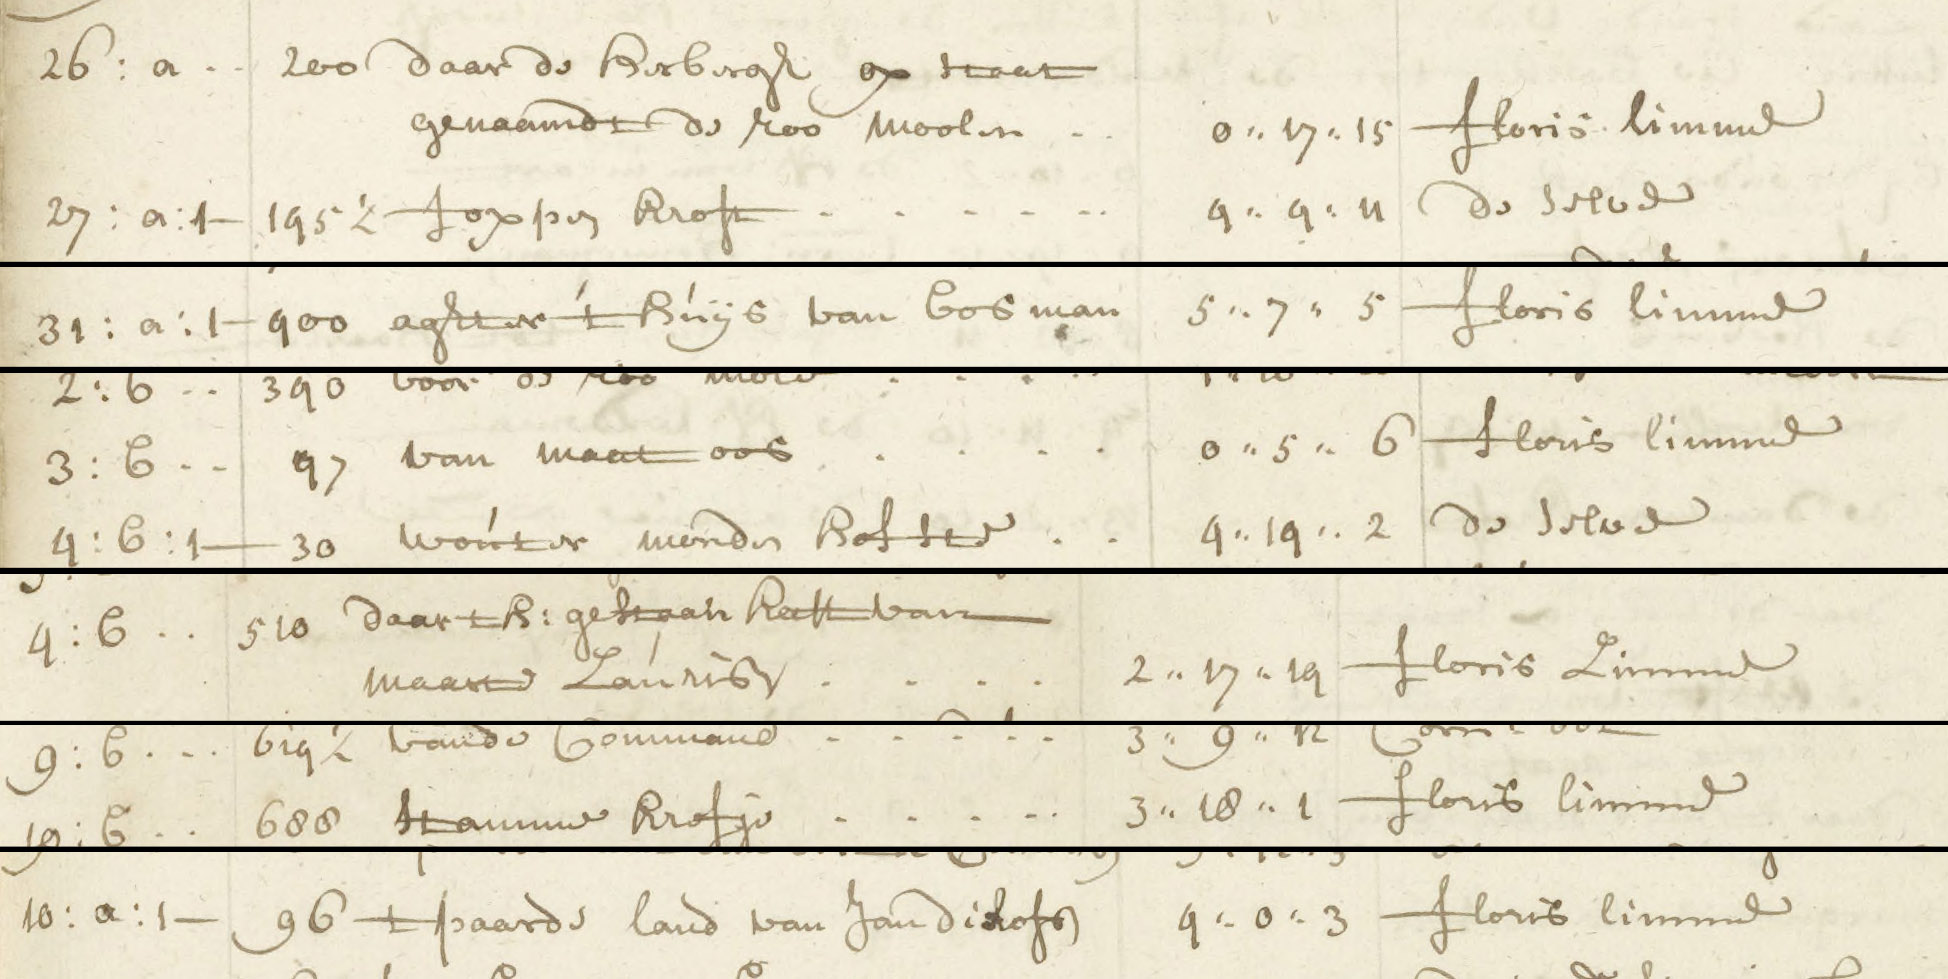 26 : a .. 200 daar de Herbergh op staat
genaamdt de roo moolen .. 0 .. 17 .. 15 floris limmen
27 : a : 1 — 195½ foppen kroft . . . . . . 4 .. 4 .. 11 de selve
31 : a : 1 — 400 aghter 't Huijs van bosman 5 .. 7 .. 5 floris limmen
2 : b .. 390 voor de roo mole . . . .
3 : b .. 47 van maat oos . . . . 0 .. 5 .. 6 floris limmen
4 : b : 1 — 30 wouter mendes Hofste . . 4 .. 19 .. 2 de selve
4 : b .. 510 daar t H: gestaan heeft van
maarte Lauris . . . . 2 .. 17 .. 14 floris Limmen
9 : b ... 614½ vande Command . . . . . 3 .. 9 .. 12
10 : b .. 688 stamme krofje . . . . . 3 .. 18 .. 1 floris limmen
10 : a : 1 — 96 t paarde land van Jan 4 .. 0 .. 3 floris limmen